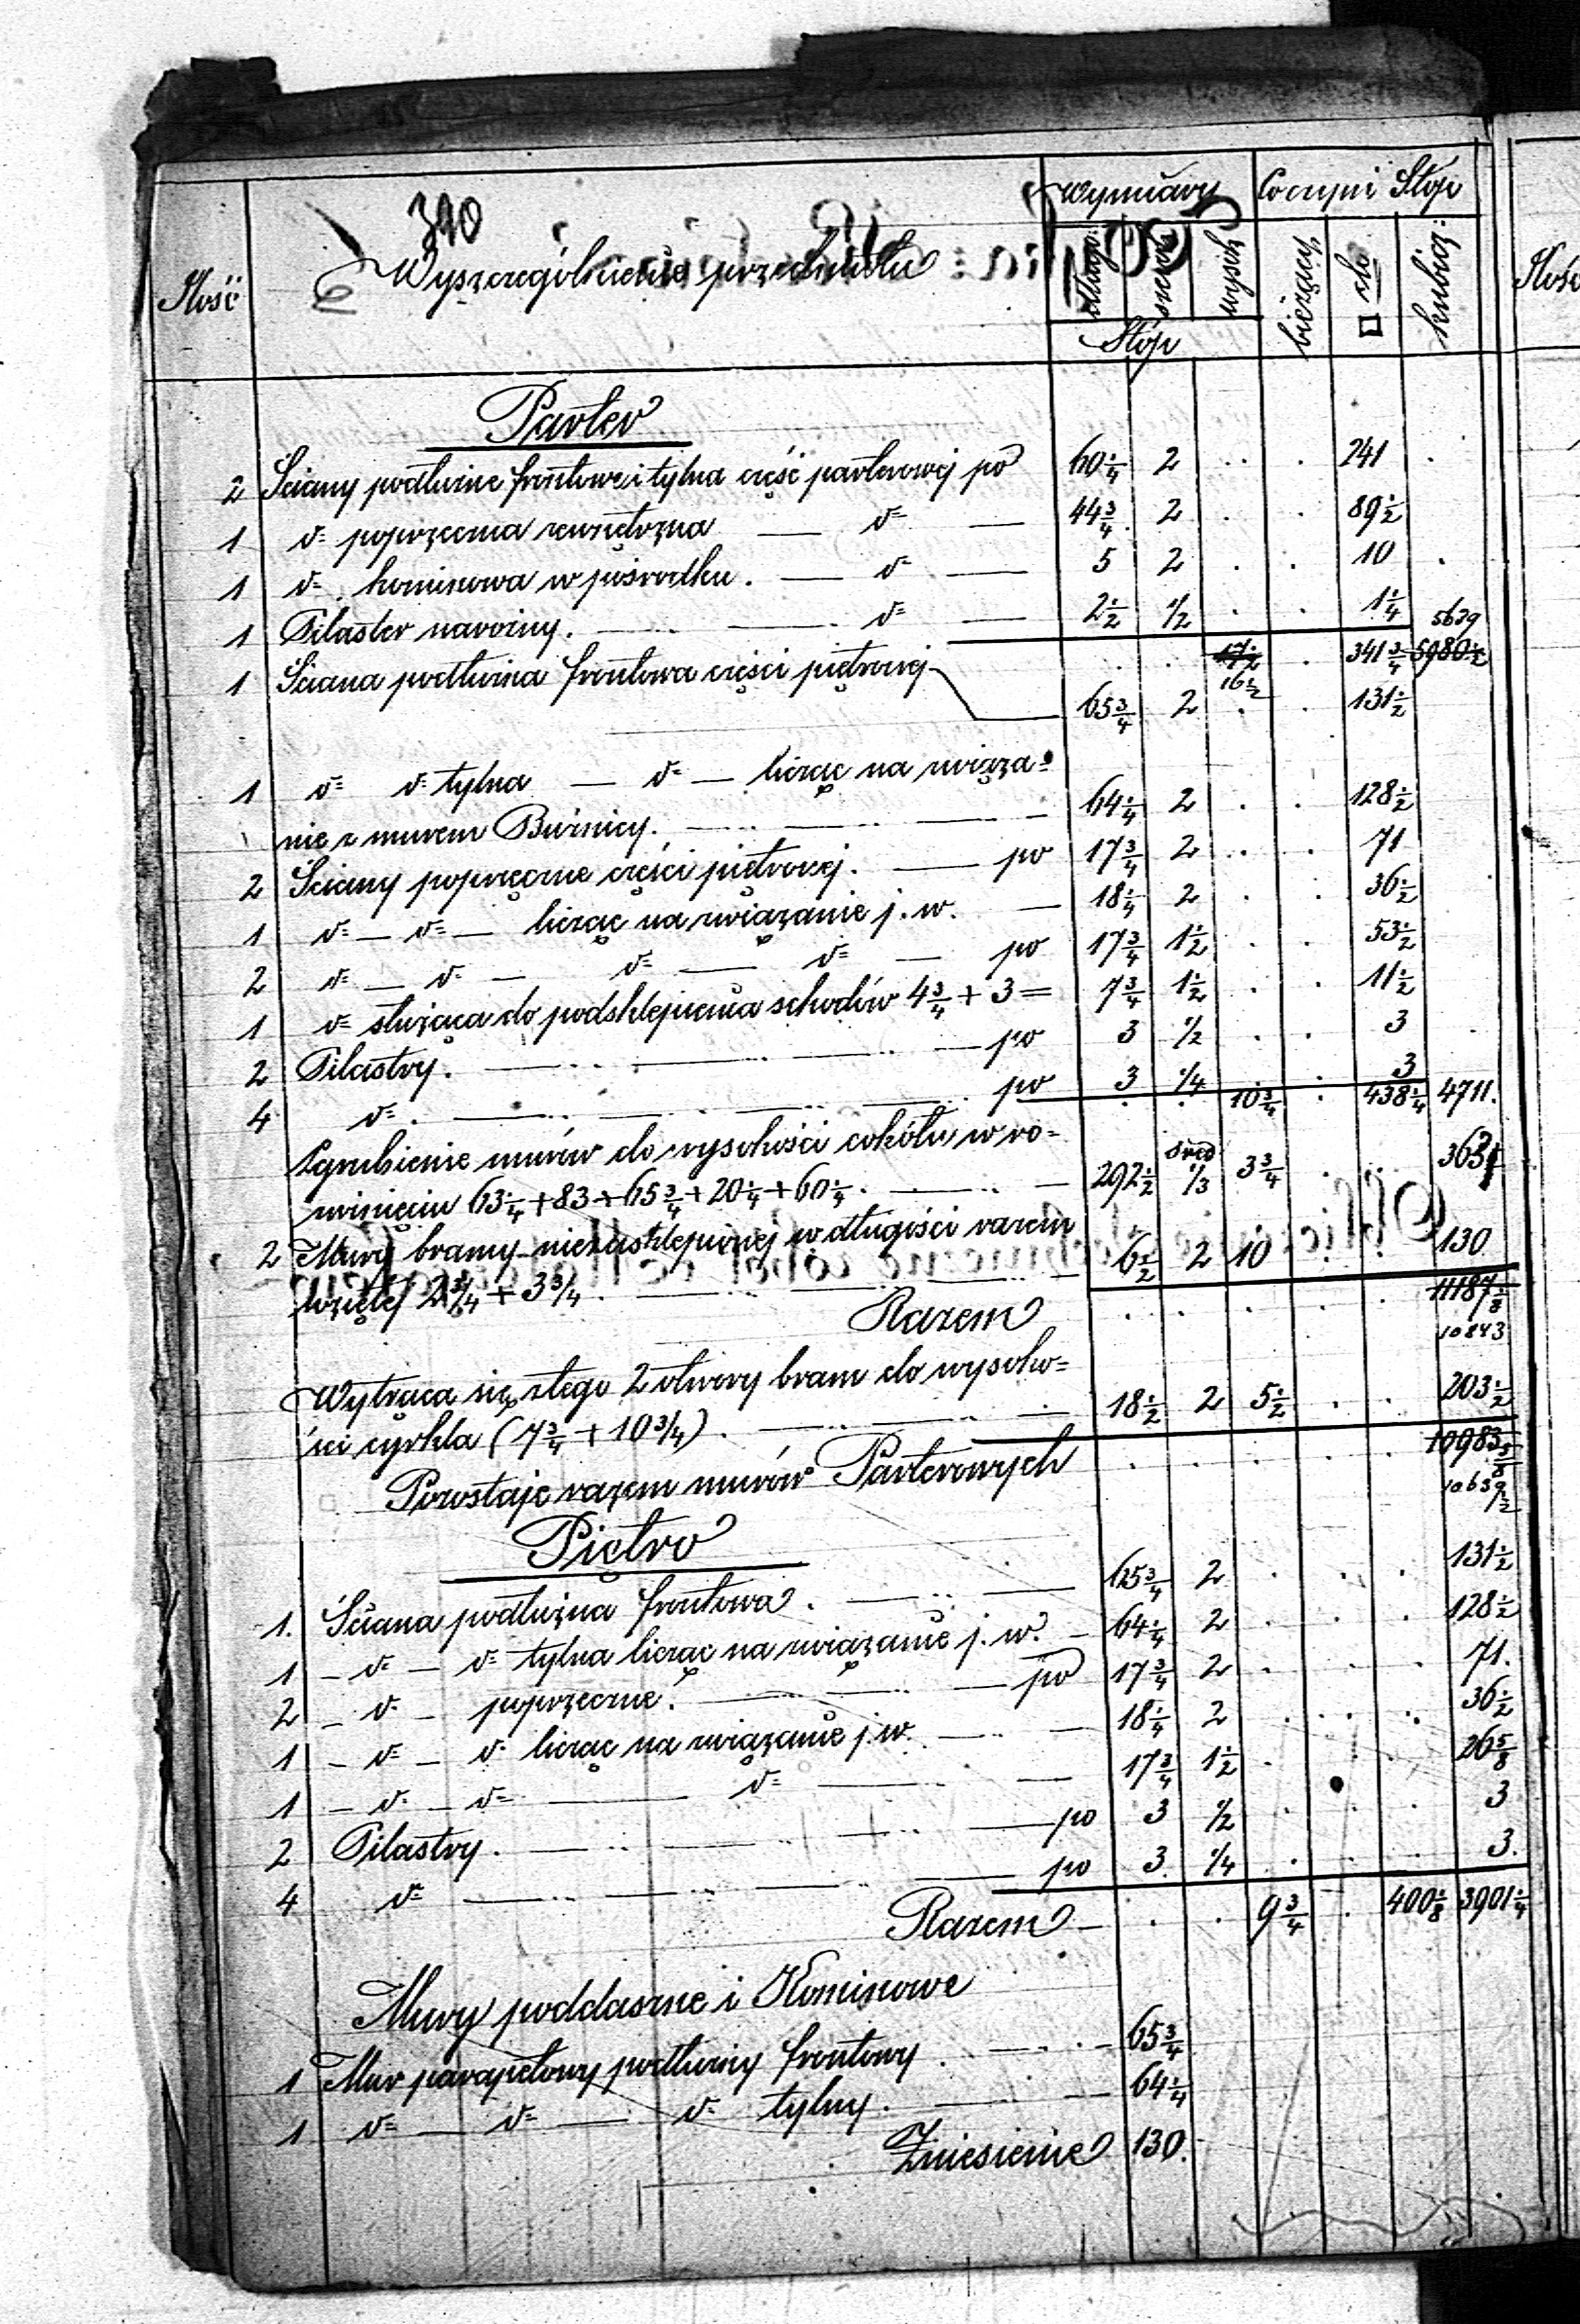 390
Ilość Wyszczególnienie przedmiotu Wymiary Coczyni Stóp
długo: szerok: wysok: bieżący: □ do kubicz:
Stóp
Parter
2 Ściany podłużne frontowe i tylna część parterowej po 60 1/4 2 241
1 d= poprzeczna zewnętrzna — d= — 44 3/4 2 89 1/2
1 d= kominowa w pośrodku. — d= — 5 2 10
1 Pilaster narożny. — d= — 2 1/2 1/2 1 1/4 5639
17 1/2 341 3/4 5980 1/2
1 Ściana podłużna frontowa części piętrowej 16 1/2
65 3/4 2 131 1/2
1 d= d= tylna — d= — licząc na związa=
nie z murem Bóżnicy. 64 1/4 2 128 1/2
2 Ściany poprzeczne części piętrowej. — po 17 3/4 2 71
1 d= — d= — licząc na związanie j. w. — 18 1/4 2 36 1/2
2 d= — d= — d= — d= — po 17 3/4 1 1/2 53 1/2
1 d= służąca do podsklepienia schodów 4 3/4 + 3 = 7 3/4 1 1/2 11 1/2
2 Pilastry. — po 3 1/2 3
4 d= . — po 3 1/4 3
10 3/4 438 1/4 4711.
Zgrubienie murów do wysokości cokółu w ro=
zwinięciu 63 1/4 + 83 + 65 3/4 + 20 1/4 + 60 1/4. — 292 1/2 śred 1/3 3 3/4 363
2 Mury bramy niezasklepionej w długości razem
wziętej 2 3/4 + 3 3/4. — 6 1/2 2 10 130
Razem 11187 1/8
10843
Wytrąca się z tego 2 otwory bram do wysoko=
ści cyrkla (7 3/4 + 10 3/4). — 18 1/2 2 5 1/2 203 1/2
Pozostaje razem murów Parterowych 10983 5/8
10639 1/2
Piętro
1. Ściana podłużna frontowa. — 65 3/4 2 131 1/2
1 — d= — d= tylna licząc na związanie j. w. — 64 1/4 2 128 1/2
2 — d= — poprzeczne. — po 17 3/4 2 71.
1 — d= — d= licząc na związanie j. w. — 18 1/4 2 36 1/2
1 — d= — d= — d= — 17 3/4 1 1/2 26 5/8
2 Pilastry. — po 3 1/2 3
4 d= — po 3 1/4 3.
Razem — 9 3/4 400 1/8 3901 1/4
Mury poddaszne i Kominowe
1 Mur parapetowy podłużny frontowy. — 65 3/4
1 d= — d= — d= tylny. — 64 1/4
Zniesienie 130.
Ilość